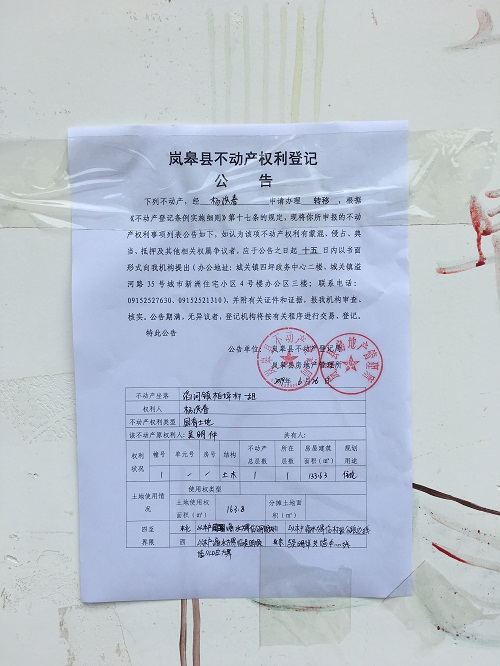 岚皋县不动产权利登记
公 告
下列不动产，经 杨洪春 申请办理 转移 ，根据
《不动产登记条例实施细则》第十七条的规定，现将你所申报的不动
产权利事项列表公告如下，如认为该项不动产权利有蒙混、侵占、典
当、抵押及其他相关权属争议者，应于公告之日起 十五 日内以书面
形式向我机构提出（办公地址：城关镇四坪政务中心二楼、城关镇滋
河路 35 号城市新洲住宅小区 4 号楼办公区三楼；联系电话：
09152527630、09152521310），并附有关证件和证据，报我机构审查、
核实。公告期满，无异议者，登记机构将按有关程序进行交易、登记。
特此公告
公告单位：岚皋县不动产登记局
岚皋县房地产管理所
6月26日
不动产坐落
权利人 杨洪春
不动产权利类型 国有土地
该不动产原权利人： 吴明仲 共有人：
权利状况 幢号 单元号 房号 结构 不动产总层数 所在层数 房屋建筑面积(㎡) 规划用途
1 / / 土木 1 1 133.63 住宅
土地使用情况 使用权类型
土地使用权面积(㎡) 163.8 分摊土地面积(㎡)
四至界限